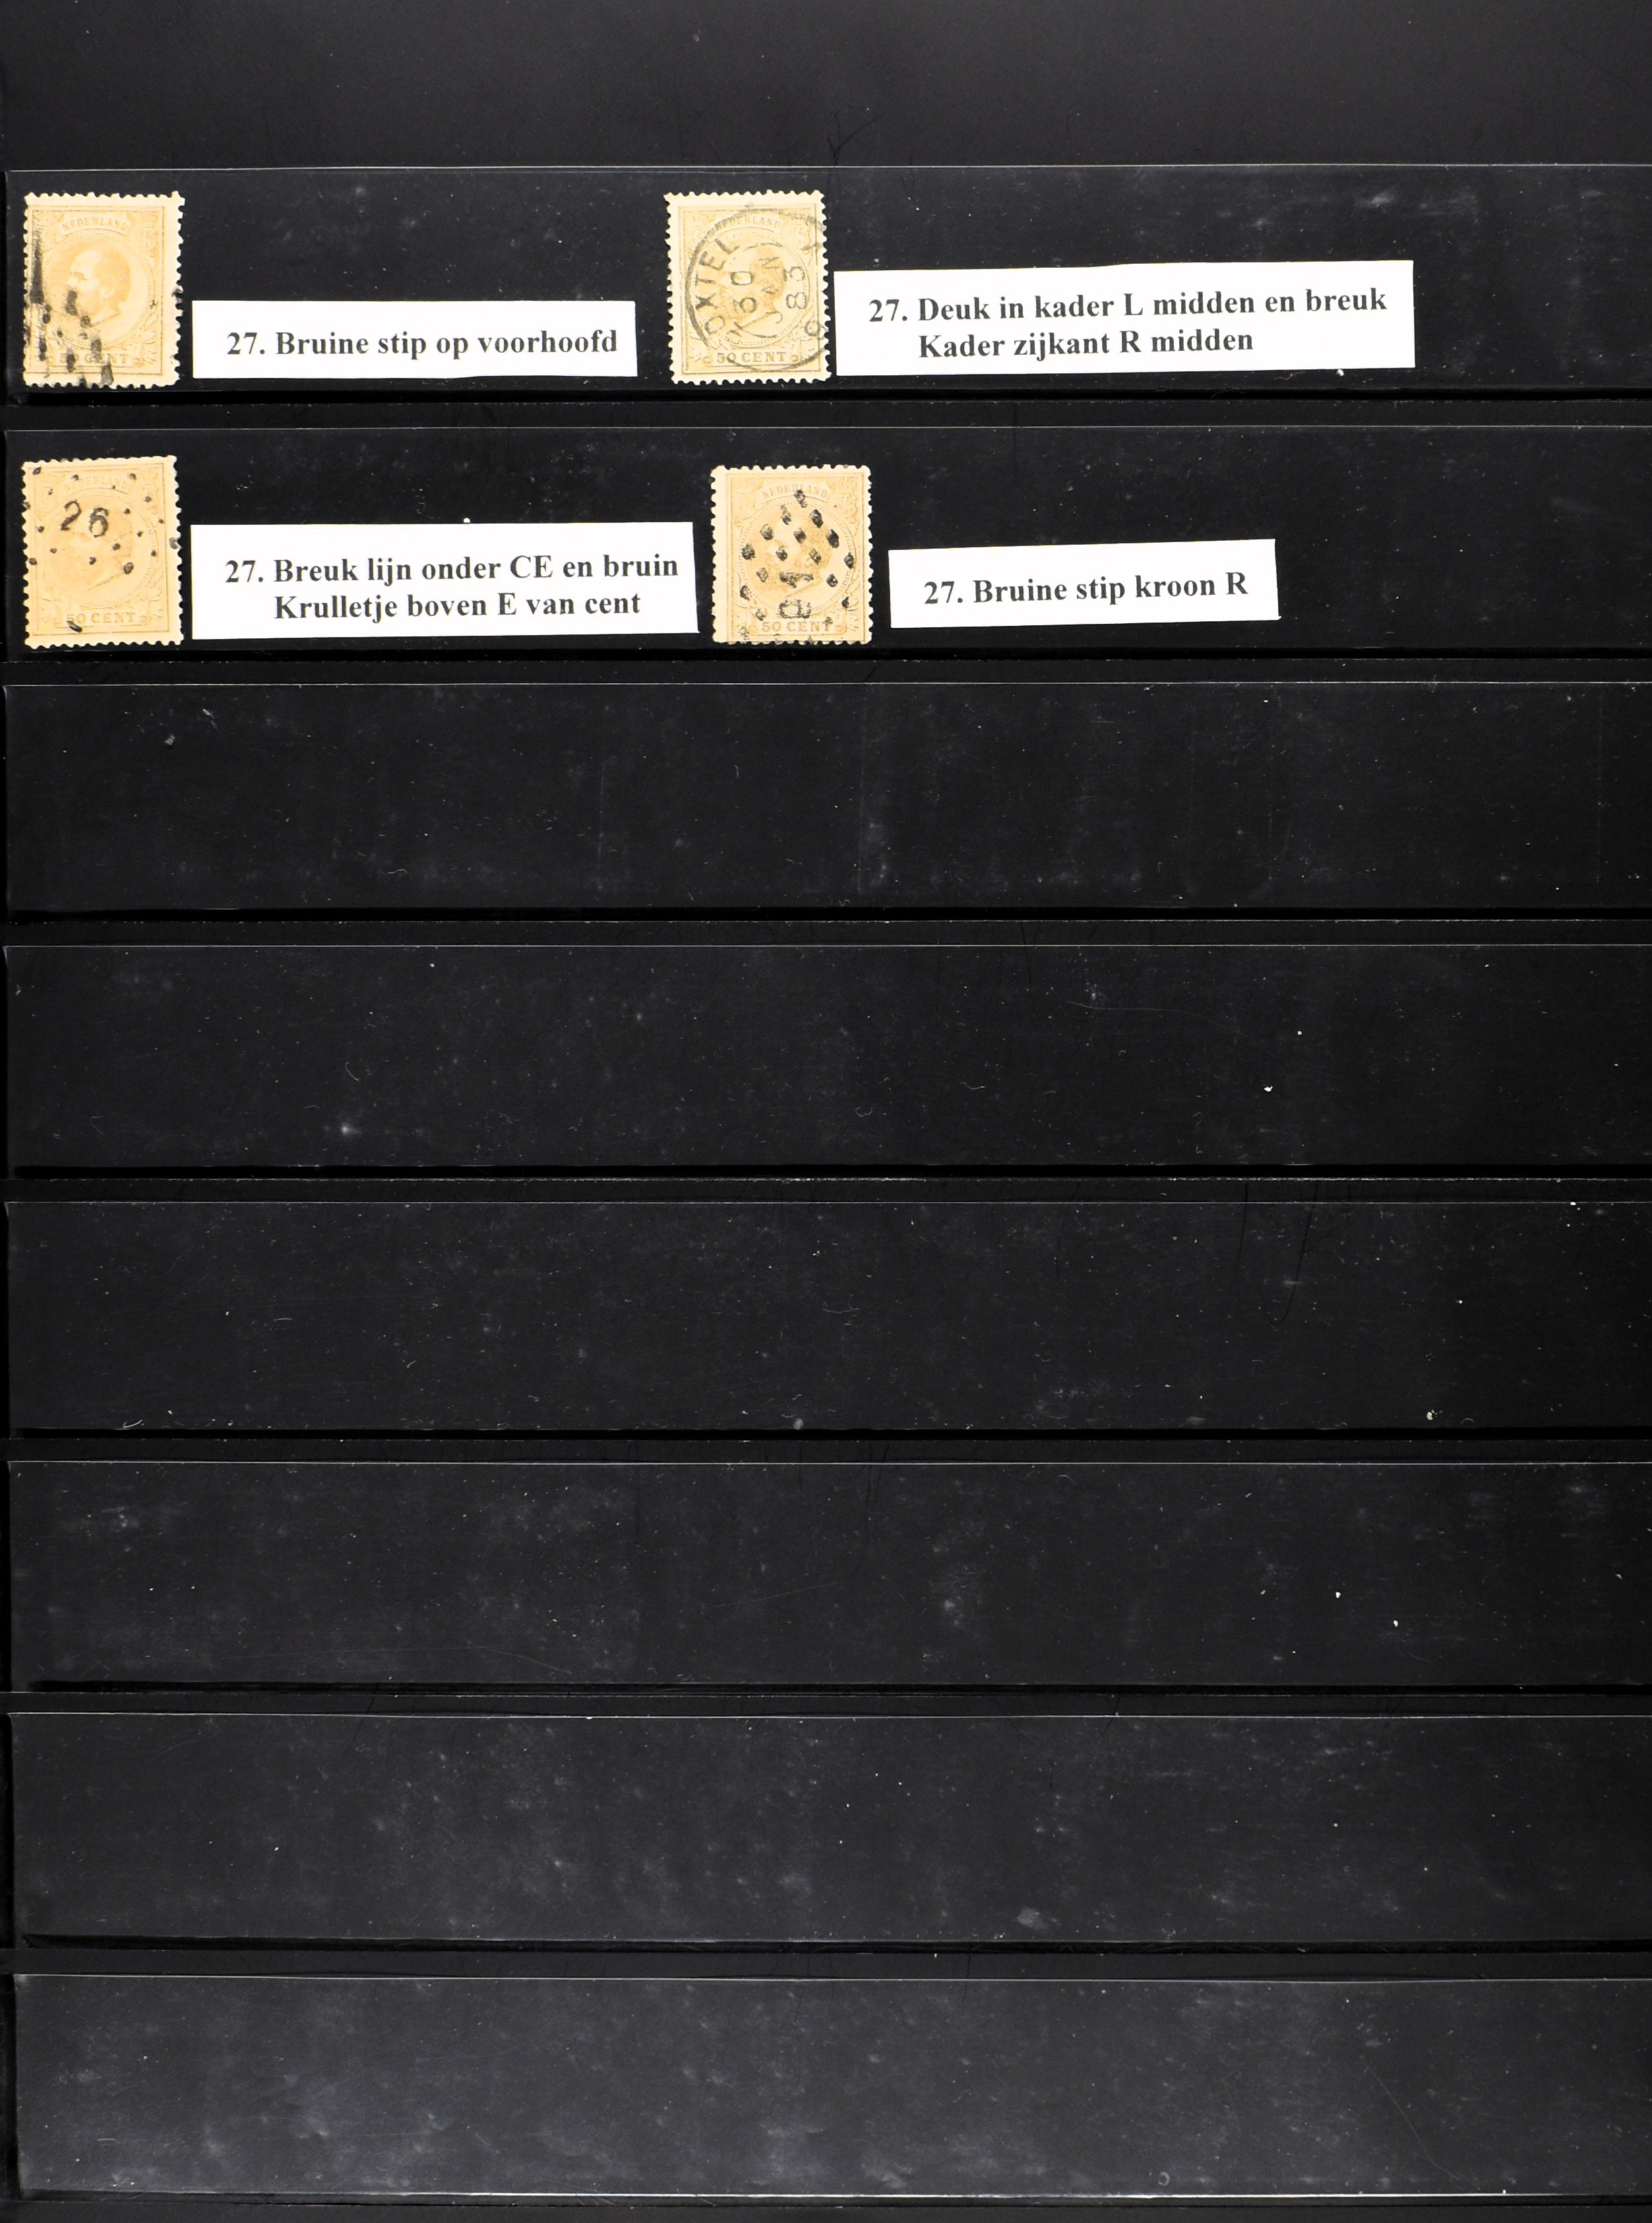 NEDERLAND
CENT
27. Bruine stip op voorhoofd
NEDERLAND
OXTEL
30
JAN
83
50 CENT
27. Deuk in kader L midden en breuk
Kader zijkant R midden
26
50 CENT
27. Breuk lijn onder CE en bruin
Krulletje boven E van cent
NEDERLAND
50 CENT
27. Bruine stip kroon R